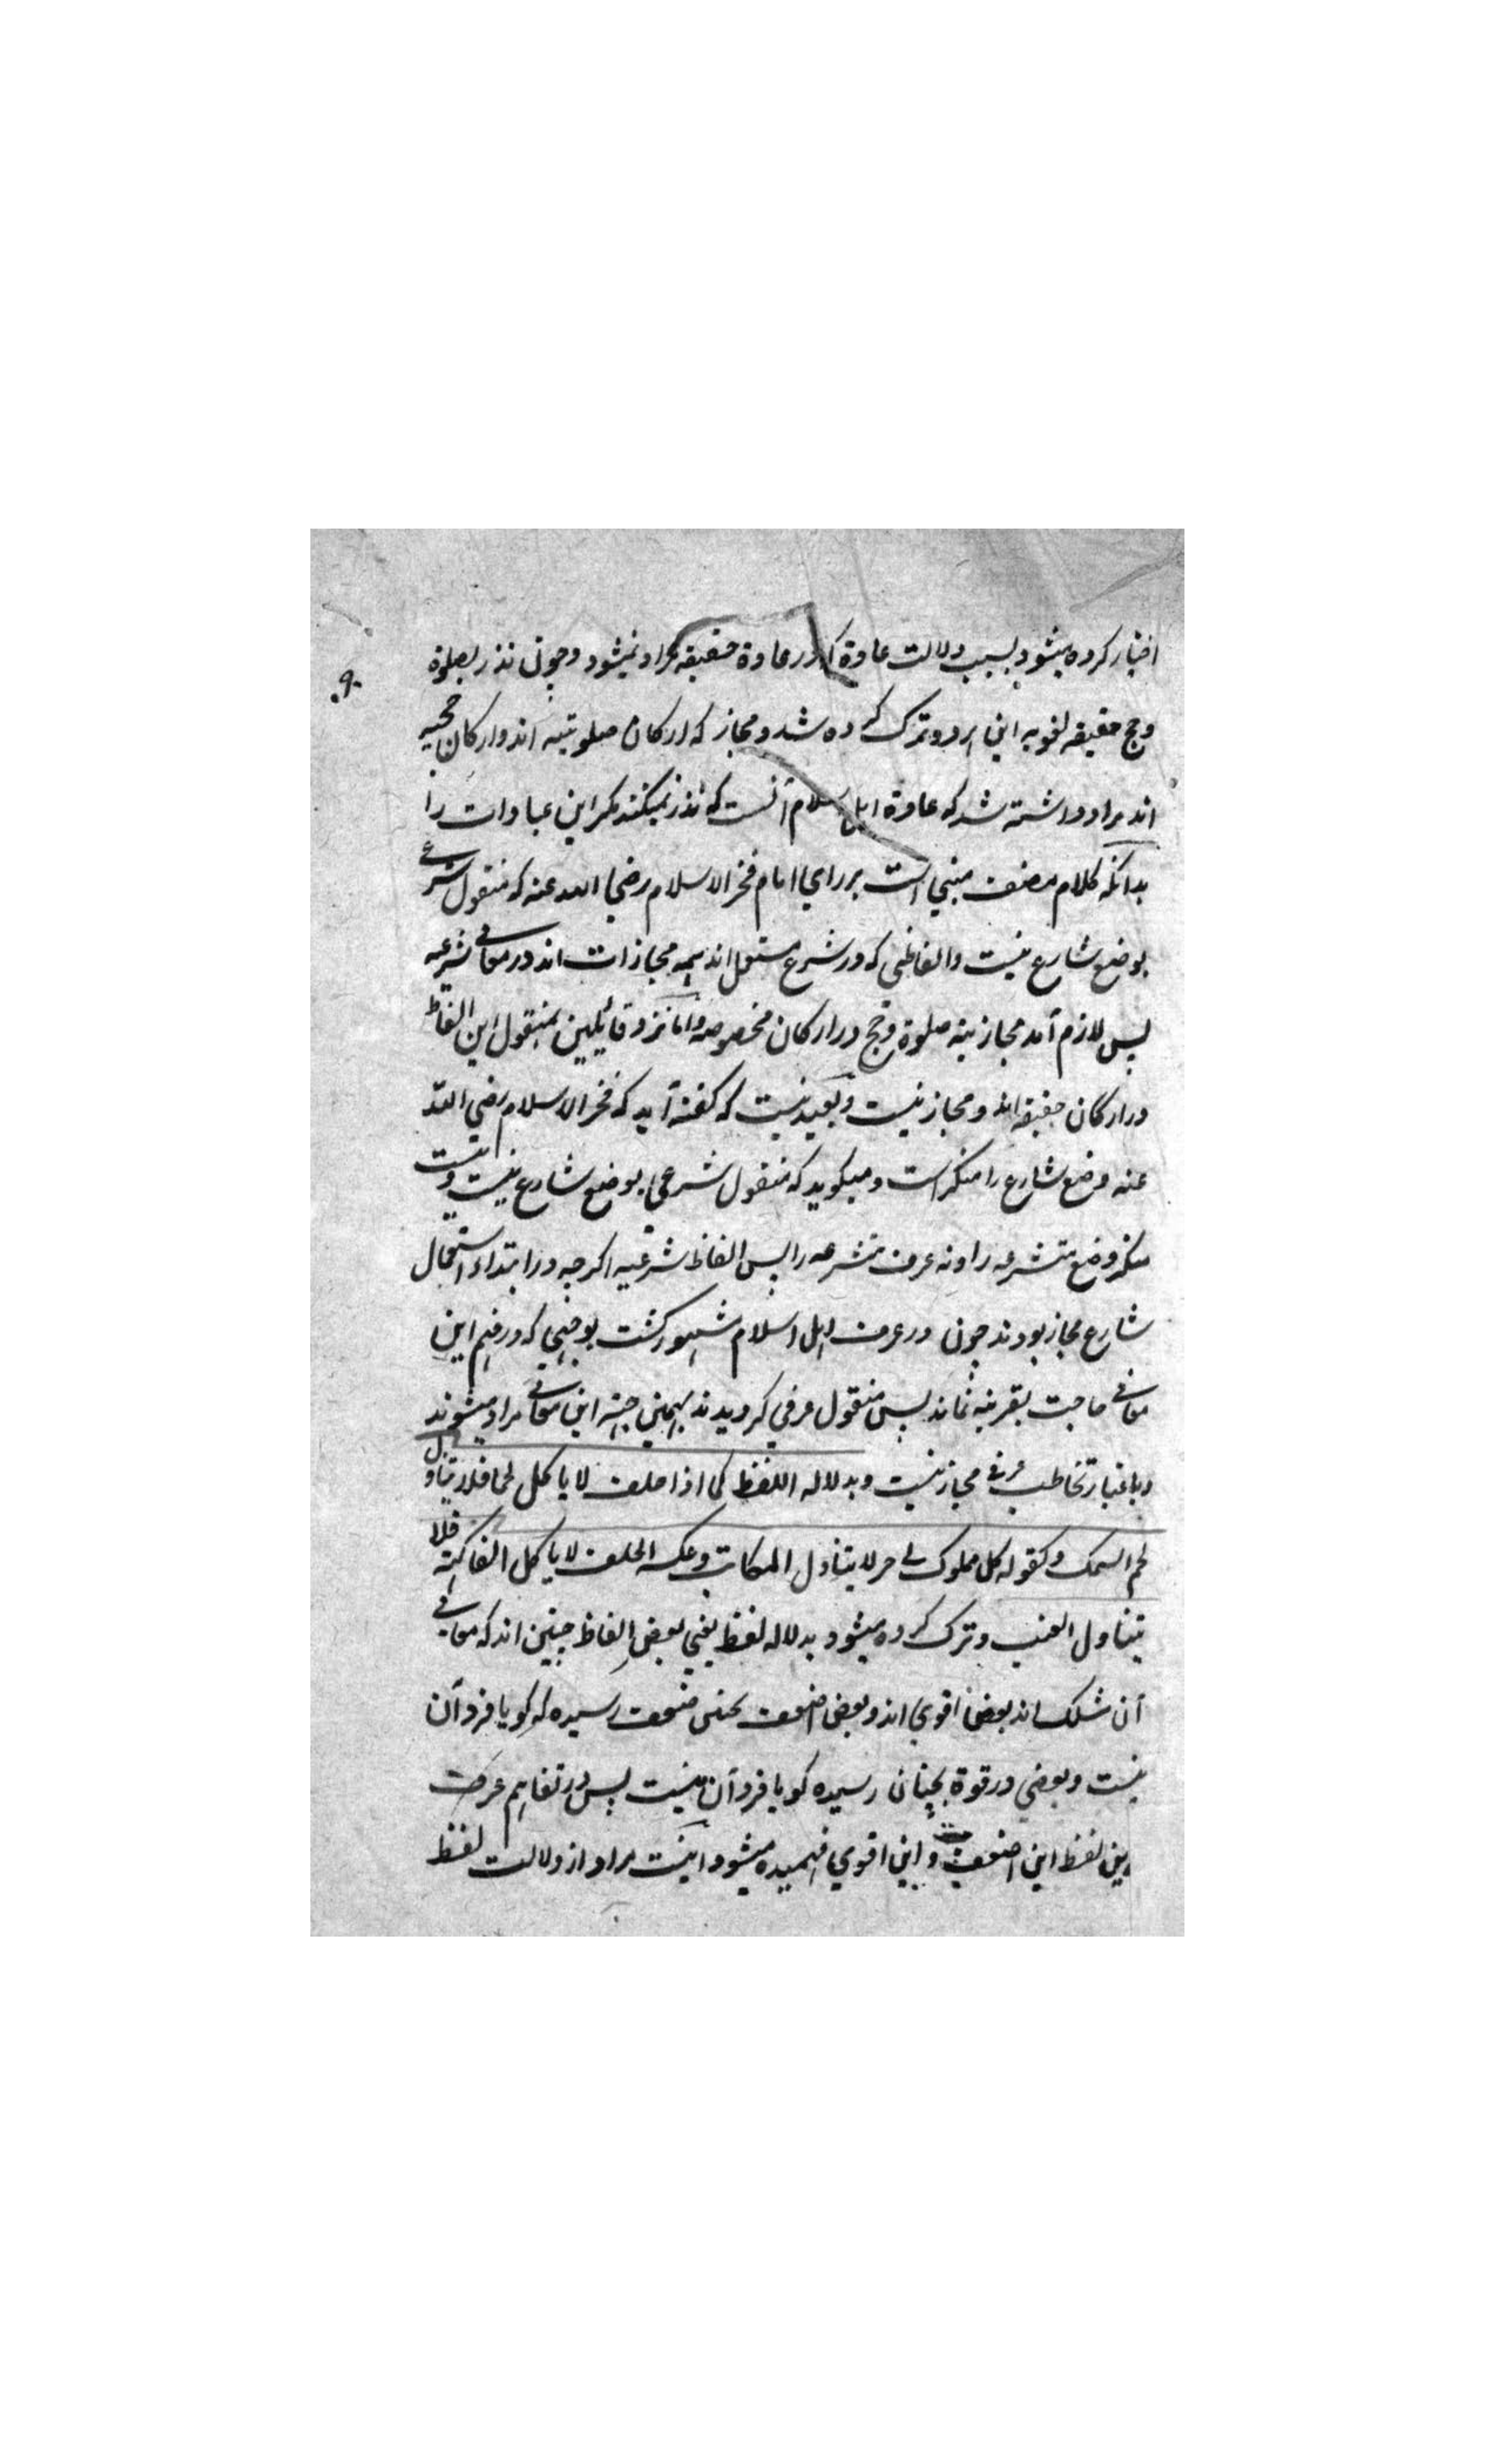 ۹۰
اختیار کرده میشود بسبب دلالت عادة که در عادة حقیقه مراد نمیشود و چون نذر بصلوة
و حج حقیقه لغویه این هر دو ترک کرده شد و مجاز که ارکان صلوتیه اند و ارکان حجیه
اند مراد داشته شد که عادة اهل اسلام آنست که نذر نمیکنند مکر این عبادات را
بدانکه کلام مصنف مبنی است بر رای امام فخر الاسلام رضی الله عنه که منقول شرعی
بوضع شارع نیست و الفاظی که در شرع مستعمل اند همه مجازات اند در معانی شرعیه
پس لازم آمد مجازیته صلوة و حج در ارکان مخصوصه و اما نزد قائلین بمنقول این الفاظ
در ارکان حقیقه اند و مجاز نیست و بعید نیست که کفته آید که فخر الاسلام رضی الله
عنه وضع شارع را منکر است و میکوید که منقول شرعی بوضع شارع نیست و نیست
منکر وضع متشرعه را و نه عرف متشرعه را پس الفاظ شرعیه اکرچه در ابتداء استعمال
شارع مجاز بودند چون در عرف اهل اسلام مشهور کشت بوجهی که در فهم این
معانی حاجت بقرینه نماند پس منقول عرفی کردیدند بهمین جهته این معانی مراد میشوند
و باعتبار تخاطب عرفی مجاز نیست و بدلاله اللفظ کما اذا حلف لا یاکل لحما فلا یتناول
لحم السمک و کقوله کل مملوک لی حر لا یتناول المکاتب و عکسه الحلف لا یاکل الفاکهة فلا
یتناول العنب و ترک کرده میشود بدلاله لفظ یعنی بعض الفاظ چنین اند که معانی
آن مشکک اند بعض اقوی اند و بعض اضعف بحتی ضعف رسیده که کویا فرد آن
نیست و بعضی در قوة بچنان رسیده کویا فرد آن نیست پس در تفاهم عرف
این لفظ این اضعف و این اقوی فهمیده میشود اینست مراد از دلالت لفظ